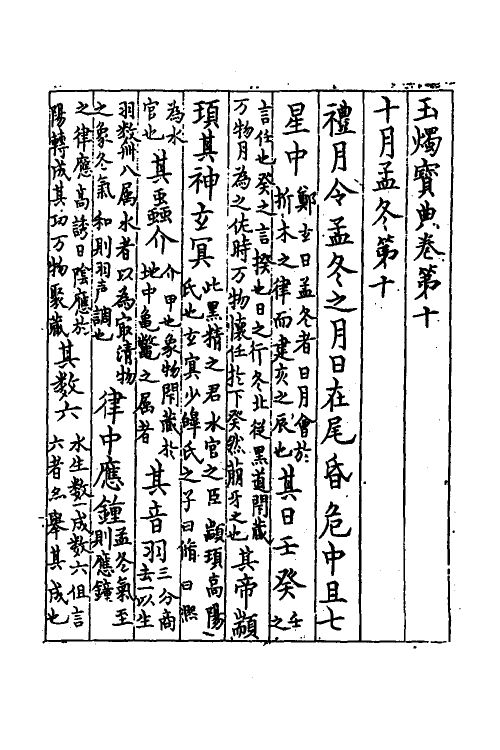 玉燭寶典卷第十
十月孟冬第十
禮月令孟冬之月日在尾昏危中旦七
星中鄭玄曰孟冬者日月會於析木之律而建亥之辰也其日壬癸壬之
言任也癸之言揆也日之行冬北從黑道閇藏万物月為之佐時万物懷任於下癸然萌牙之也其帝顓
頊其神玄冥此黒精之君水官之臣顓頊高陽氏也玄冥少皞氏之子曰脩曰熈
為水官也其蟲介介甲也象物閇藏於地中龜鼈之属者其音羽三分商去一以生
羽数卌八属水者以為冣清物之象冬氣和則羽声調也律中應鍾孟冬氣至則應鍾
之律應高誘曰陰應於陽轉成其功万物聚藏其数六水生数一成数六但言六者亦舉其成也